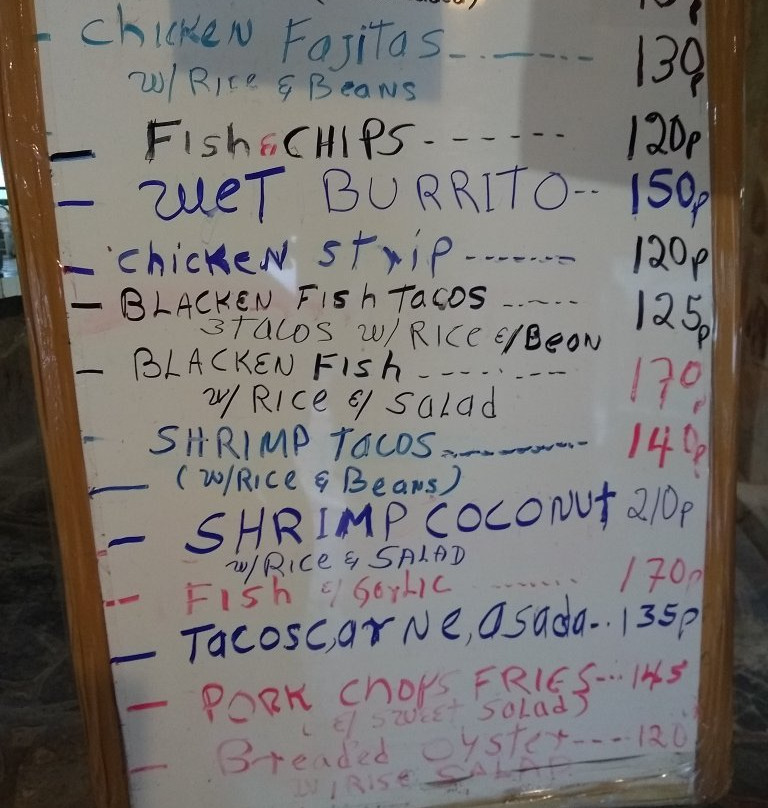 Chicken Fajitas--------- 130p
w/ Rice & Beans
— Fish & CHIPS------- 120p
— WET BURRITO-- 150p
— Chicken Strip------- 120p
— BLACKEN Fish Tacos ----- 125p
3 Tacos w/ Rice &/ Beon
— BLACKEN Fish ------- 170
w/ Rice &/ Salad
- SHRIMP TACOS---------- 140p
— (w/Rice & Beans)
— SHRIMP COCONUt 210p
w/Rice & SALAD
-- Fish &/ Garlic ------- 170p
— Tacos carne, asada-- 135p
— PORK ChoPs FRIES--- 145
( &/ Sweet Salad)
— Breaded Oyster---- 120
w/ Rise SALAD